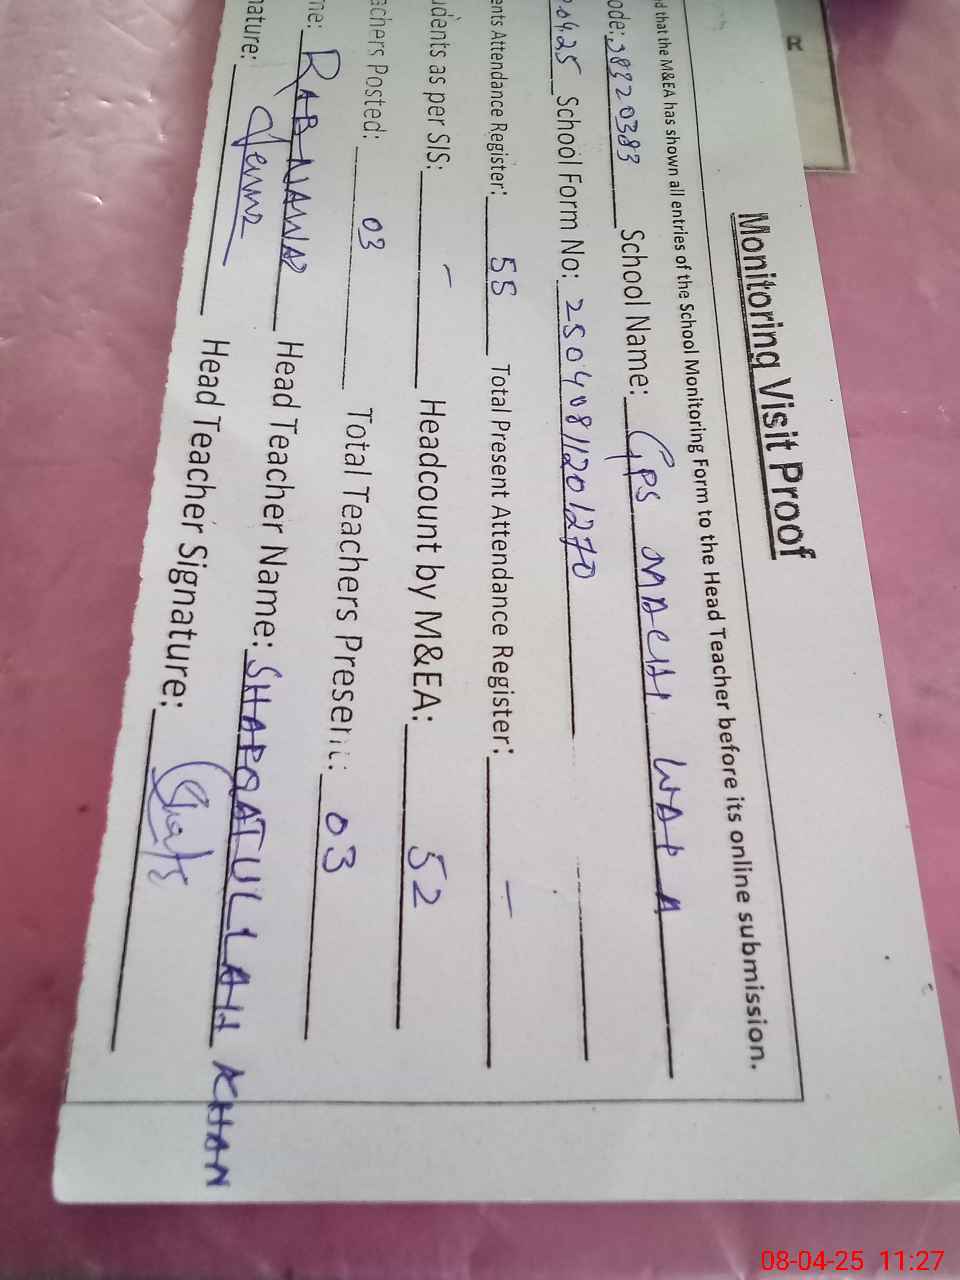 Monitoring Visit Proof
d that the M&EA has shown all entries of the School Monitoring Form to the Head Teacher before its online submission.
ode: 38320383 School Name: GPS MACHI WALA
.04.25 School Form No: 25040811201270
ents Attendance Register: 55 Total Present Attendance Register: –
udents as per SIS: – Headcount by M&EA: 52
achers Posted: 03 Total Teachers Present: 03
me: RAB NAWAZ Head Teacher Name: SHAFQATULLAH KHAN
nature: Head Teacher Signature:
R
08-04-25 11:27